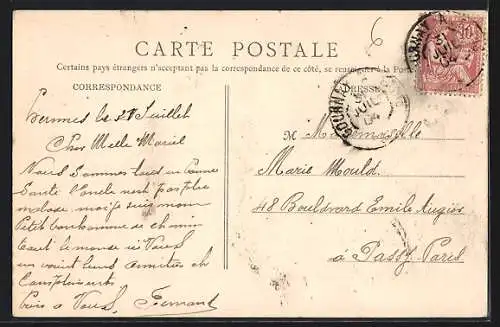 CARTE POSTALE
Certains pays étrangers n'acceptant pas la correspondance de ce côté, se renseigner à la Poste
CORRESPONDANCE
ADRESSE
GOURNAY
31
JUIL
04
10
le 28 Juillet
Cher Melle
Nous sommes tous en bonne
Santé l'oncle n'est pas plus
malade mais suis mon
Petit bonhomme de chemin
tout le monde ici Vous
amitiés et
Compliments
à Vous Fernand
M Mademoiselle
Marie Mould.
48 Bouldvard Emile Augier
à Passy Paris